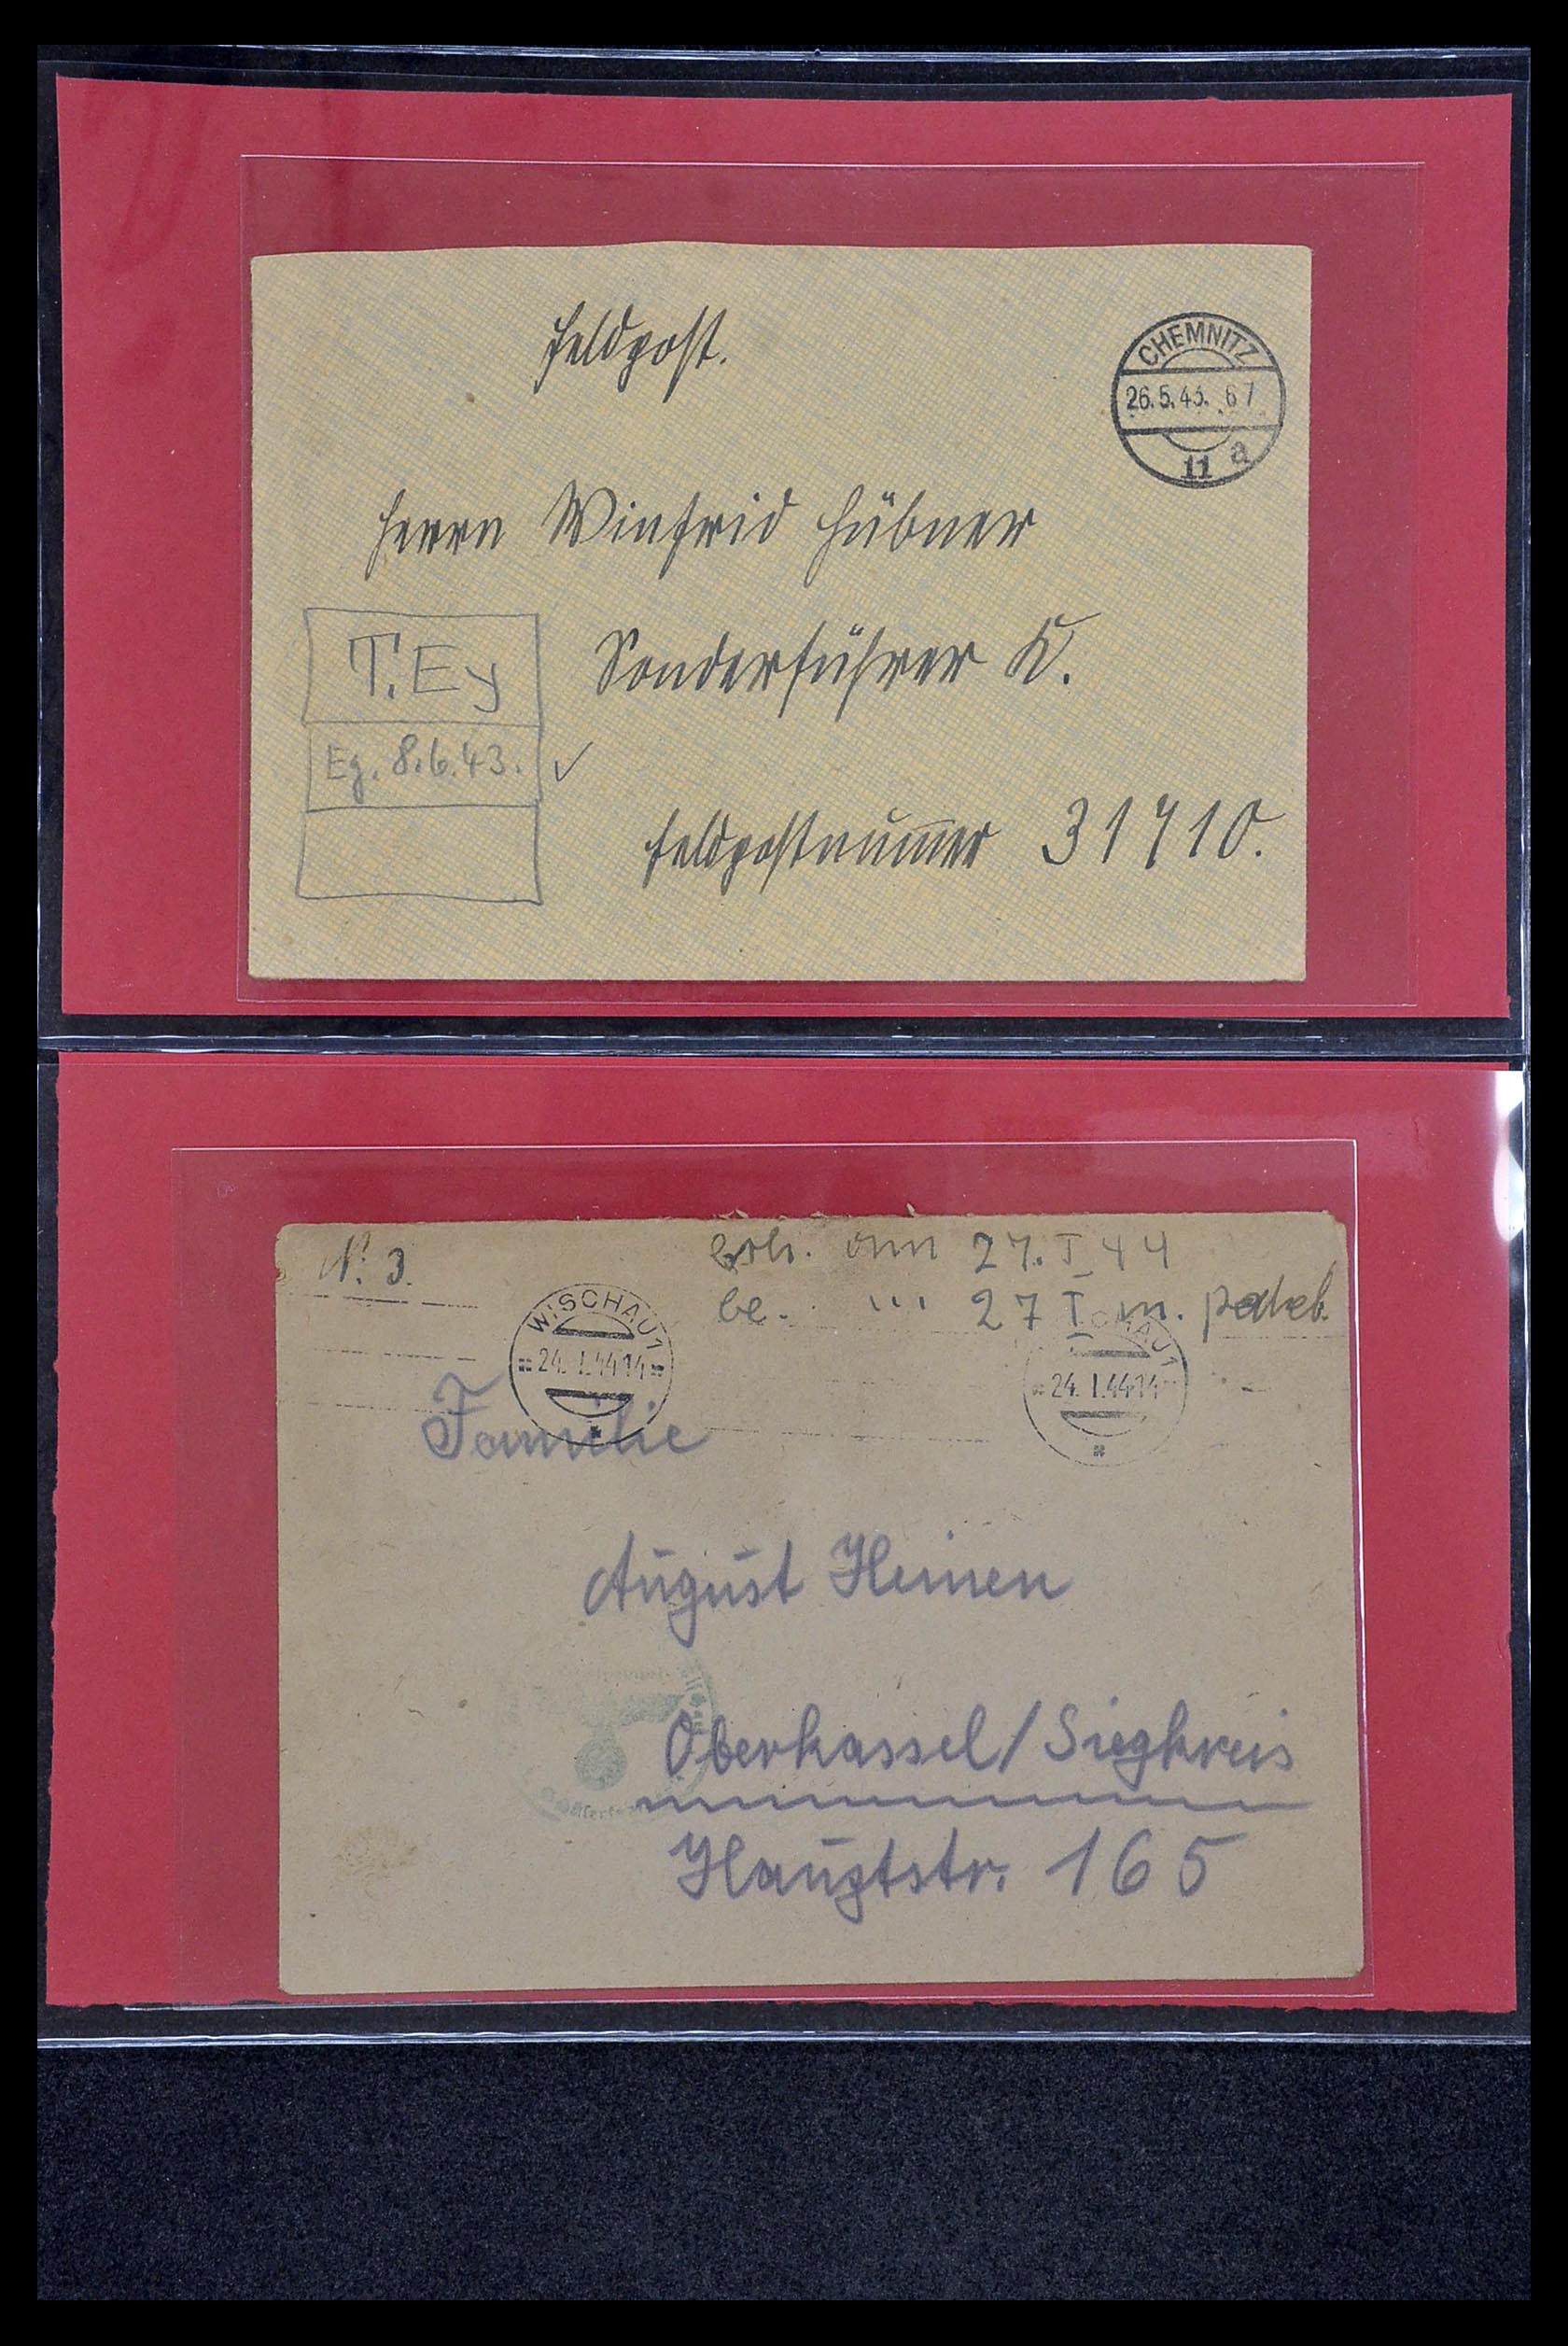 Feldpost.
CHEMNITZ
26.5.43. 67
11 a
Herrn Winfrid Hübner
Sonderführer K.
T.Ey
Eg. 8.6.43. ✓
Feldpostnummer 31710.
N: 3.
Erh. am 27.I 44
be. 27 I m.
WISCHAU 1
24. I.44 14
WISCHAU 1
24. I.44 14
Familie
August Heinen
Oberkassel/Siegkreis
Hauptstr. 165